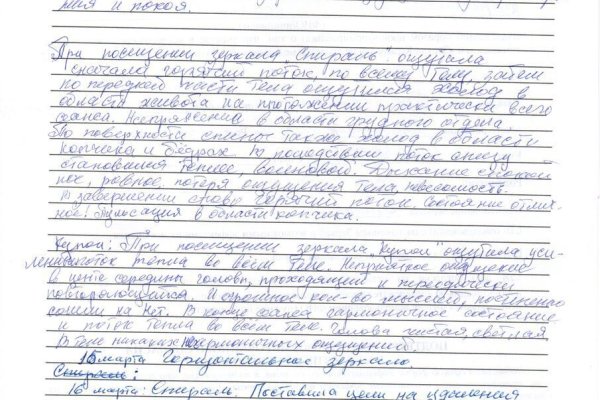 ния и покоя.
При посещении зеркала "Спираль" ощущала
сначала горячий поток, по всему телу, затем
по передней части тела ощущался холод в
области живота на протяжении практически всего
сеанса. Напряжение в области грудного отдела.
По поверхности спины также холод в области
копчика и бёдрах. В последствии поток снизу
становился теплее, волновой. Дыхание спокой
ное, ровное, потеря ощущения тела, невесомость.
В завершении снова горячий поток. Состояние отлич-
ное. Пульсация в области копчика.
Купол: При посещении зеркала "Купол" ощутила уси-
ление поток тепла во всём теле. Неприятное ощущение
в центе середины головы, проходящий и периодически
повторяющийся. И огромное кол-во мыслей, постепенно
сошли на нет. В конце сеанса гармоничное состояние
и поток тепла во всём теле. Голова чистая, светлая,
В теле никаких негармоничных ощущений.
15 марта Горизонтальное зеркало.
Спираль:
16 марта: Спираль. Поставила цели на удаления